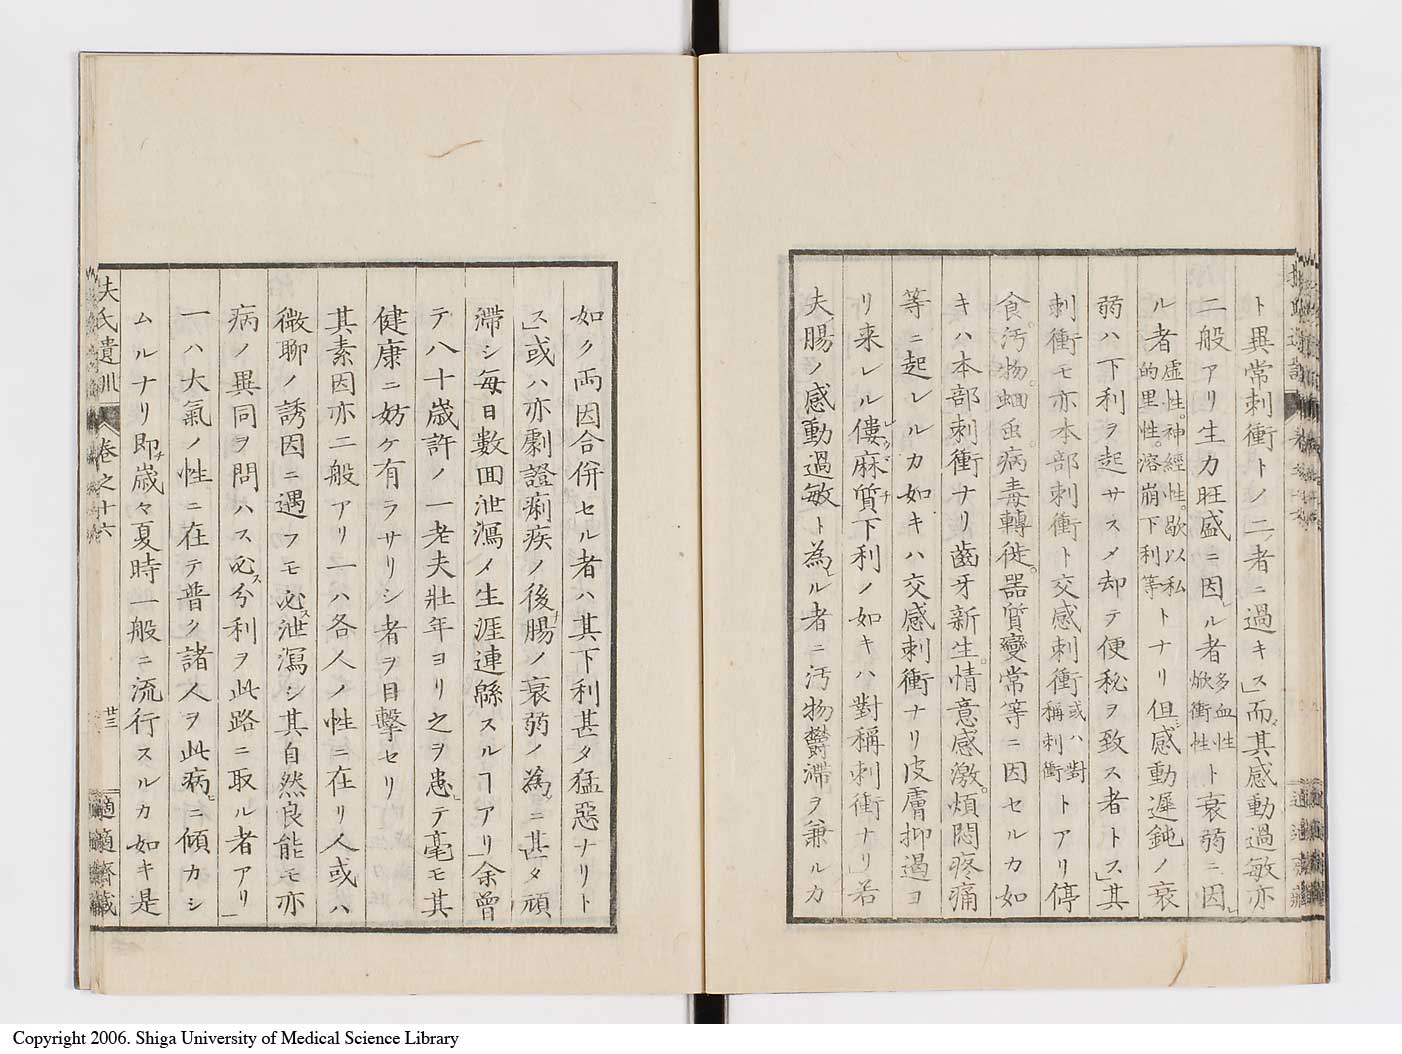 ト異常刺衝トノ二者ニ過キス」而其感動過敏亦
二般アリ生力旺盛ニ因ル者多血性焮衝性ト衰弱ニ因
ル者虚性。神經性。歇以私的里性。溶崩下利等トナリ但感動遲鈍ノ衰
弱ハ下利ヲ起サスメ却テ便秘ヲ致ス者トス」其
刺衝モ亦本部刺衝ト交感刺衝或ハ對稱刺衝トアリ停
食。汚物。蛔虫。病毒轉徙。器質變常等ニ因セルカ如
キハ本部刺衝ナリ齒牙新生。情意感激。煩悶疼痛
等ニ起レルカ如キハ交感刺衝ナリ皮膚抑遏ヨ
リ来レル僂麻質下利ノ如キハ對稱刺衝ナリ」若
夫腸ノ感動過敏ト為ル者ニ汚物鬱滯ヲ兼ルカ
如ク両因合併セル者ハ其下利甚タ猛惡ナリト
ス」或ハ亦劇證痢疾ノ後腸ノ衰弱ノ為ニ甚タ頑
滯シ毎日數回泄瀉ノ生涯連緜スルヿアリ」余曾
テ八十歳許ノ一老夫壯年ヨリ之ヲ患テ毫モ其
健康ニ妨ケ有ラサリシ者ヲ目擊セリ
其素因亦二般アリ一ハ各人ノ性ニ在リ人或ハ
微聊ノ誘因ニ遇フモ必泄瀉シ其自然良能モ亦
病ノ異同ヲ問ハス必分利ヲ此路ニ取ル者アリ」
一ハ大氣ノ性ニ在テ普ク諸人ヲ此病ニ傾カシ
ムルナリ即歳々夏時一般ニ流行スルカ如キ是
夫氏遺訓
卷之十六
廿三
適適齋藏
Copyright 2006. Shiga University of Medical Science Library